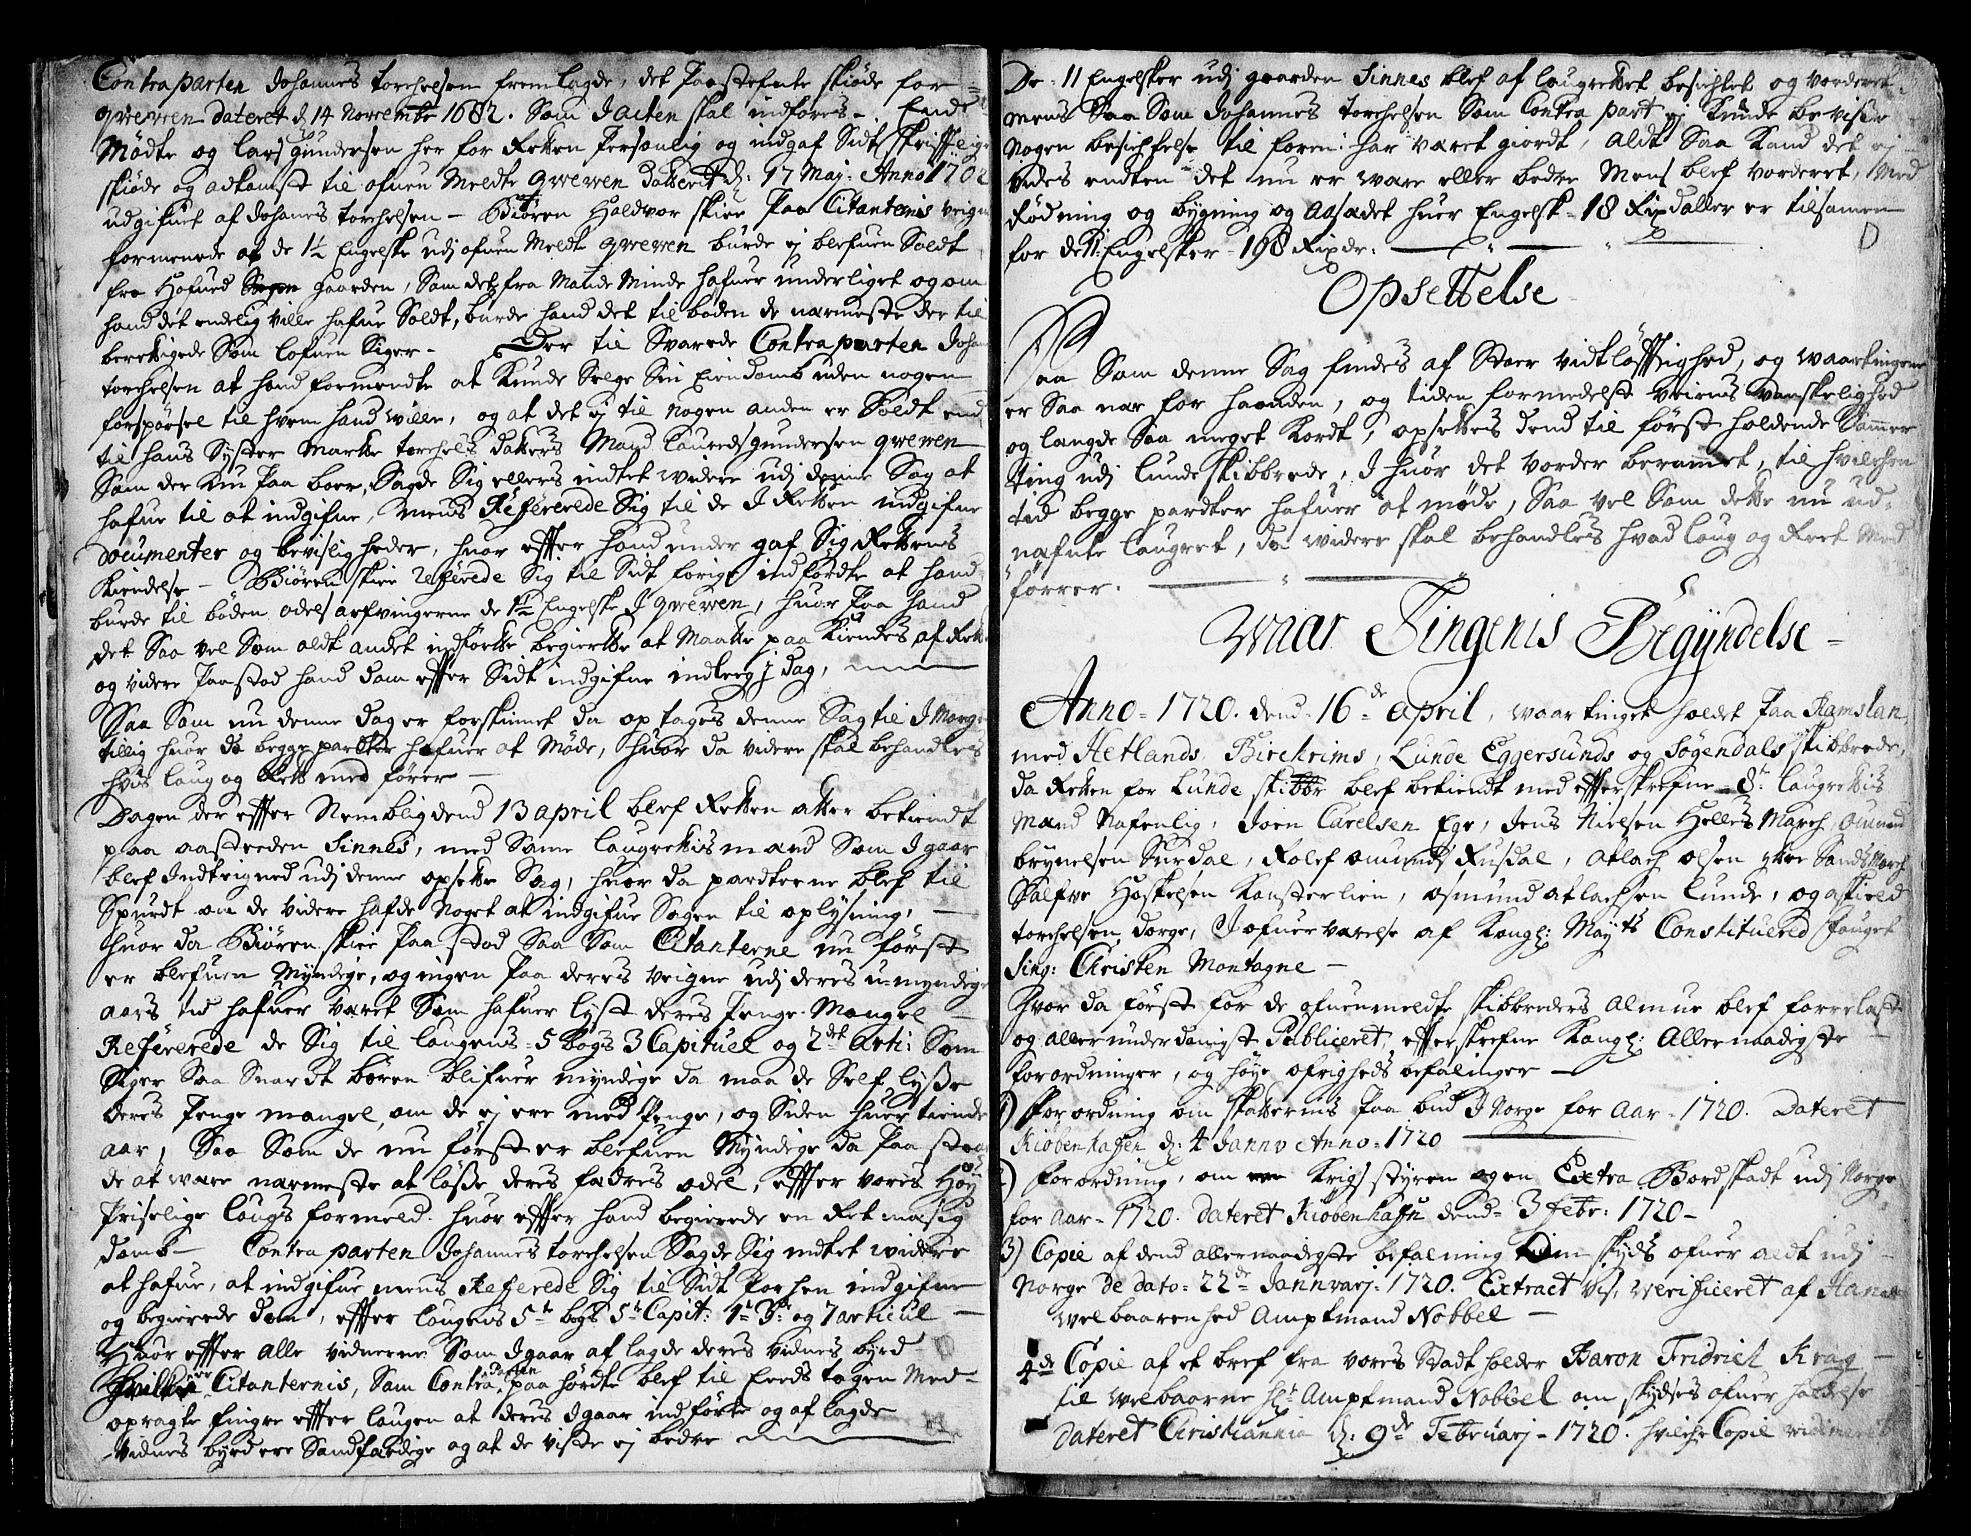 Contraparten Johannes torchelsen fremlagde, det Paastefnte skiøde for
qwewen dateret d 14 Novembr 1682. Som J acten skal indføres -. Ende
Mødte og Lars gundersen her for Retten Personlig og indgaf Sidt skrifftlige
skiøde og adkomst til ofuen Meldte qwewen Datteret d: 17 Maj: Anno 1702
udgifuet af Johanes torchelsen - Biøren Haldvor skier Paa Citantenis veigne
formenede at de 1½ Engelske udj ofuen Meldt qwewen burde ej blefuen Soldt
fra Hofued gaarden, Som det fra Mands Minde hafuer underliget og om
hand det endelig ville hafue Soldt, burde hand det til boden de nærmeste der til
berettigede Som lofuen Siger - Der til Svarede Contraparten Johan
torchelsen at hand formendte at Kunde Selge Sin Eiendomb uden nogen
forspørsel til hvem hand wille, og at det ej til nogen anden er Soldt end
til hans Syster Marte torchels datters Mand Laureds gundersen qwewen
Som der nu Paa boer, Sagde Sig ellers indtet widere udj denne Sag at
hafue til at indgifue, mens Refererede Sig til de J Retten indgifne
Documenter og bevisligheder, huor effter hand under gaf Sig Rettens
Kiendelse - Biøren skier Refererede Sig til Sidt forige indførdte at hand
burde til böden odels arfvingerne de 1½ Engelske J qwewen, huor Paa hand
det Saa vel Som aldt andet indførte begierte at Maatte paa Kiendes af Rett
og videre Paastod hand dom effter Sidt indgifne indleeg j dag,
Saa Som nu denne dag er forskiinet da op tages denne Sag til J Morgen
tillig huor da begge pardter hafuer at Møde, huor da videre skal behandles
hvis laug og Rett med fører -
Dagen der effter Nemblig dend 13 april blef Retten atter betiendt
paa aastæden Sinnes, med Samme laugrettis mænd Som J gaar
blef Indteigned udj denne opsette Sag, huor da pardterne blef til
Spurdt om de videre hafde Noget at indgifue Sagen til oplysning, -
Huor da Biøren skier Paa stod Saa Som Citanterne nu først
er blefuen Myndige, og ingen Paa deres veigne udj deres u-myndige
aars tid hafuer været Som hafuer lyst deres Penge Mangel -
Refererede de Sig til laugens 5 bogs 3 Capituel og 2det Arti: Som
Siger Saa Snardt børen blifuer myndige da maa de Self lysse
deres Penge mangel, om de ej ere med Penge, og Siden huer tiende
aar, Saa Som de nu først er blefuen Myndige da Paa staar
de at ware nærmeste at løsse deres fædres odel, effter vores Høy
Priselige laugs formeld. huor effter hand begierede en Ret mæsig
domb - Contra parten Johannes torchelsen Sagde Sig indtet widere
at hafue, at indgifue mens Refererede Sig til Sidt forhen indgifne
og begierede dom, effter laugens 5te bogs 5te Capit: 1te 3de og 7 articul -
Huor effter Alle vidnerne Som J gaar af lagde deres vidnes byrd
Citanternis, Sam Contra parten paa hørdte blef til Eeds tagen Med
opragte fingre effter laugen at deres J gaar indførte og af lagde
vidnes byrd ere Sandfærdige og at de viste ej bedre
De 11 Engelsker udj gaarden Sinnes blef af laugrettet besichtet og vorderet
mens Saa Som Johannes torchelsen Som Contra part ej Kunde bevisse
nogen besichtelse til foren har været giordt, aldt Saa Kand det ej
vides endten det nu er ware eller bedre Mens blef vorderet, Med
Rødning og bygning og Aasædet huer Engelsk - 18 Rixdaller er tilsamen
for de 11 Engelsker - 198 Rixdr:
Opsettelse
Saa Som denne Sag findes af Stoer vidtløfftighed, og waartingene
er Saa nær for haanden, og tiden formedelst veiens vanskelighed
og langde Saa meget Kordt, opsettes dend til først holdende Sommer
ting udj Lunde skibbrede, J huor det vorder berammet, til hvilchen
tid begge pardter hafuer at møde, Saa vel Som dette nu ud-
næfnte laugret, da widere skal behandles hvad laug og Rett Med
førrer.
Waar Tingenis Begyndelse -
Anno - 1720. dend 16de april, waar tinget holdt Paa Ramslan,
med Hetlands, Birchrims, Lunde Eggersunds og Sogendals skibbrede,
da Retten for Lunde skibbr blef betiendt med effterskrefne 8te laugrettis
mænd Nafnlig, Joen Carelsen Ege, Jens Nielsen Helles March, Omund
brynelsen Surdal, Rolef omunds Rusdal, Atlach olsen ytre Sands March
Salfve Hoskelsen Kansterlien, osmund atlachsen Lunde, og askield
torchelsen dorge, J ofuerværelse af Kongl: Mayts Constituered fouget
Sing: Christen Montagne -
Hvor da först for de ofuenmeldte skibbreders Almue blef forrelæst
og allerunderdanigst Publiceret, effterskrefne Kongl: Allernaadigste
forordninger, og höye öfrigheds befalinger -
1) forordning om skatternes Paa bud J Norge for Aar - 1720. Dateret
Kiøbenhaffen d: 4 Janv Anno - 1720
2) forordning, om Krigs styren og en Extra Bordskadt udj Norge
for Aar - 1720. dateret Kiøbenhaffn dend 3 febr: 1720 -
3) Copie af dend allernaadigste befalning om skyds ofuer aldt udj -
Norge de dato - 22de Jannvarj - 1720. Extract vis, Verificeret af Hans
Velbaarenhed Amptmand Nobbel -
4de Copie af et bref fra vores Stadtholder Baron Fridrich Krag -
til Velbaarne Hr Amptmand Nobbel om skydses ofuer holdelse
dateret Christiannia d: 9de Februarj - 1720. hvilche Copie vidimeret